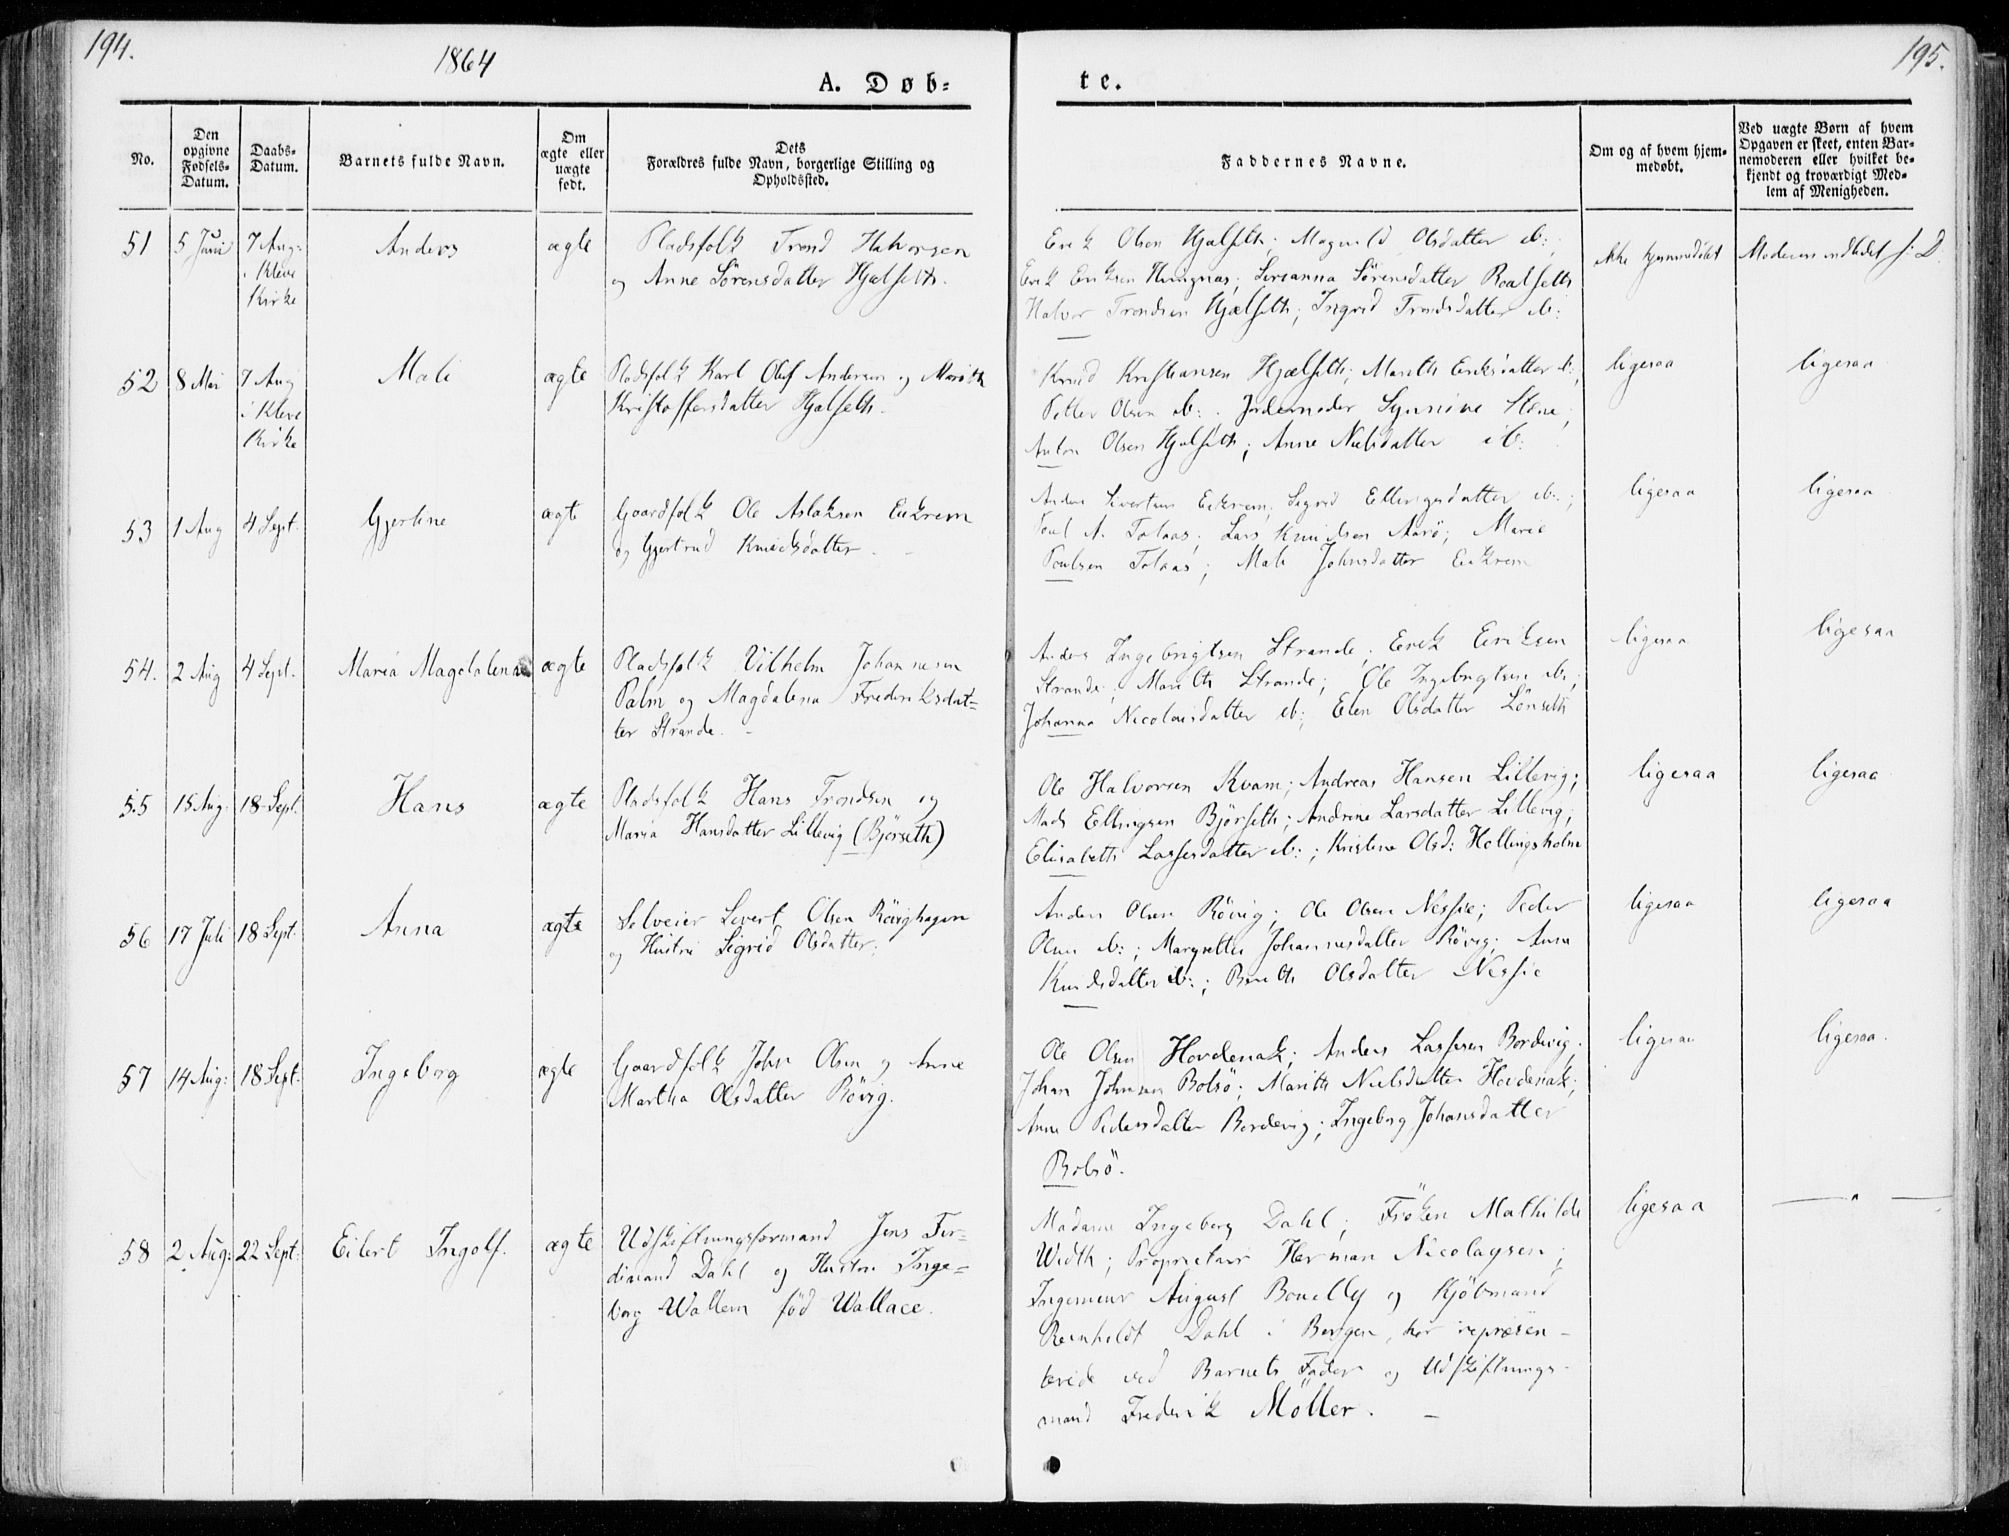 194.
1864
A. Døb-
te.
195.
No.
Den opgivne Fødsels-Datum.
Daabs-Datum.
Barnets fulde Navn.
Om ægte eller uægte født.
Dets Forældres fulde Navn, borgerlige Stilling og Opholdssted.
Faddernes Navne.
Om og af hvem hjem-medøbt.
Ved uægte Børn af hvem Opgaven er skeet, enten Bar-nemoderen eller hvilket be-kjendt og troværdigt Med-lem af Menigheden.
51 5 Juni 7 Aug: i Kleve Kirke Anders ægte
Pladsfolk Trond Halvorsen
og Anne Sörensdatter Hjælseth.
Erik Olsen Hjælseth; Magnild Olsdatter ib:;
Erik Eriksen; Sörensdatter Roalseth
Halvor Trondsen Hjælseth; Ingrid Trondsdatter ib:
ikke hjemmedöbt
Moderen indledet s: D.
52 8 Mai 7 Aug i Kleve Kirke Mali ægte
Pladsfolk Karl Oluf Andersen og Marith
Kristoffersdatter Hjælseth.
Knud Kristiansen Hjælseth; Marith Eriksdatter ib:;
Petter Olsen ib:; Jordemoder Synnöve Stene;
Anton Olsen Hjælseth; Anne Nielsdatter ib:
ligesaa
ligesaa
53 1 Aug 4 Sept. Gjertine ægte
Gaardfolk Ole Aslaksen Eikrem
og Gjertrud Knudsdatter.
Anders Sivertsen Eikrem; Sigrid Ellingsdatter ib:;
Poul A. Tolaas; Lars Knudsen Aarö; Marie
Poulsen Tolaas; Mali Johnsdatter Eikrem
ligesaa
ligesaa
54. 2 Aug 4 Sept. Maria Magdalena ægte
Pladsfolk Vilhelm Johannesen
Palm og Magdalena Frederiksdat-
ter Strande.
Anders Ingebrigtsen Strande; Erik Eriksen
Strande; Marith Strande; Ole Ingebrigtsen ib:;
Johanna Nicolaisdatter ib:; Elen Olsdatter Lönseth
ligesaa
ligesaa
55 15 Aug. 18 Sept. Hans ægte
Pladsfolk Hans Trondsen og
Maria Hansdatter Lillevig (Björseth)
Ole Halvorsen Kvam; Andreas Hansen Lillevig;
Mads Ellingsen Björseth; Andrine Larsdatter Lillevig;
Elisabeth Lassesdatter ib:; Kristine Olsd: Hollingsholm
ligesaa
ligesaa
56 17 Juli 18 Sept. Anna ægte
Selveier Sivert Olsen Rövighagen
og Hustru Sigrid Olsdatter.
Anders Olsen Rövig; Ole Olsen Nessie; Peder
Olsen ib:; Margrethe Johannesdatter Rövig; Anne
Knudsdatter ib:; Olsdatter Nessie
ligesaa
ligesaa
57 14 Aug: 18 Sept. Ingeborg ægte
Gaardfolk John Olsen og Anne
Martha Olsdatter Rövig.
Ole Olsen Hovdenak; Anders Lassesen Bordevig;
Johan Johnsen Bolsö; Marith Nielsdatter Hovdenak;
Anne Pedersdatter Bordevig; Ingeborg Johansdatter
Bolsö.
ligesaa
ligesaa.
58 2 Aug: 22 Sept: Eilert Ingolf. ægte
Udskiftningsformand Jens Fer-
dinand Dahl og Hustru Inge-
borg Wallem föd Wallace.
Madame Ingeborg Dahl; Fröken Mathilde
Width; Proprietair Herman Nicolaysen;
Ingenieur August Bonelly og Kjöbmand
Reinholdt Dahl i Bergen, her repræsen-
terede ved Barnets Fader og Udskiftnings-
mand Frederik Möller.
ligesaa